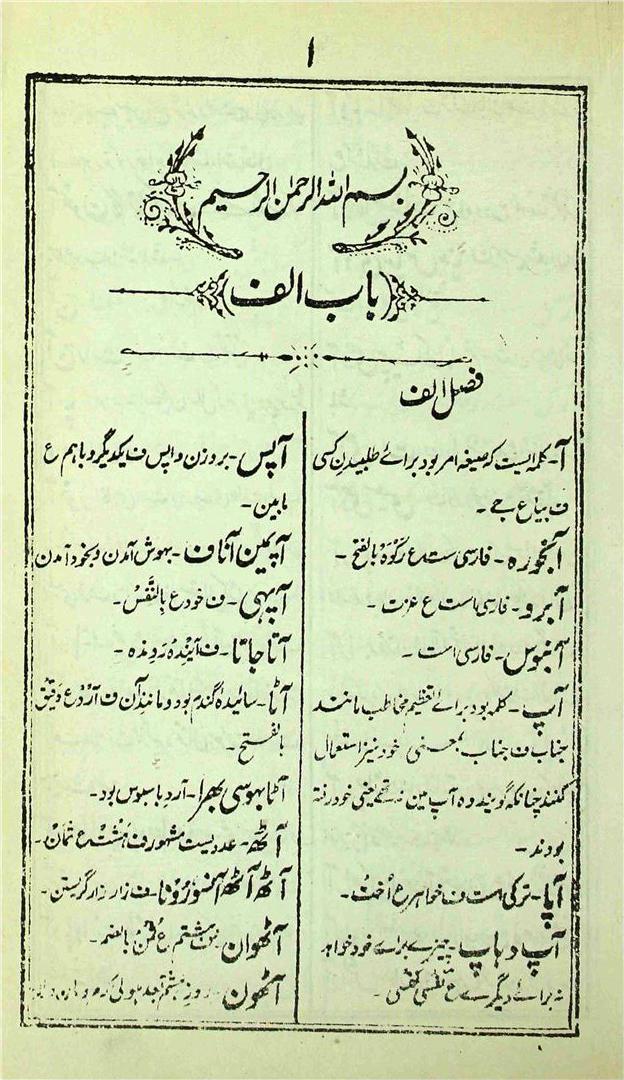 ا
بسم الله الرحمٰن الرحیم
(باب الف)
فصل الف
آ۔ کلمہ ایست کہ صیغہ امر بود برائے طلبیدن کسی
ف بیا ع جے۔
آبخورہ۔ فارسی ست ع رَکْوَہ بالفتح۔
آبرو۔ فارسی است ع عزت۔
آبنوس۔ فارسی است۔
آپ۔ کلمہ بود برائے تعظیم مخاطب مانند
جناب ف جناب بمعنی خود نیز استعمال
کنند چنانکہ گویند وہ آپ مین نہ تھے یعنی خود رفتہ
بودند۔
آپا۔ ترکی است ف خواہر ع اُخت۔
آپ دہاپ۔ چیزے برائے خود خواہد
نہ برائے دیگرے ع نفسی نفسی۔
آپس۔ بروزن واپس ف یکدیگر و باہم ع
مابین۔
آپمین آنا ف۔ بہوش آمدن و بخود آمدن
آپہی۔ ف خود ع بِالنَّفْس۔
آتا جاتا۔ ف آیندہ رَوِندہ۔
آٹا۔ سائیدہ گندم بود و مانند آن ف آرد ع دقیق
بالفتح۔
آٹا بہوسی بھرا۔ آرد با سبوس بود۔
آٹھ۔ عددیست مشہور ف ہشت ع ثمان۔
آٹھ آٹھ آنسو رونا۔ ف زار زار گریستن۔
آٹھوان ہشتم ع ثمن بالضم۔
آٹھون۔ روز ہشتم بعد ہولی کہ